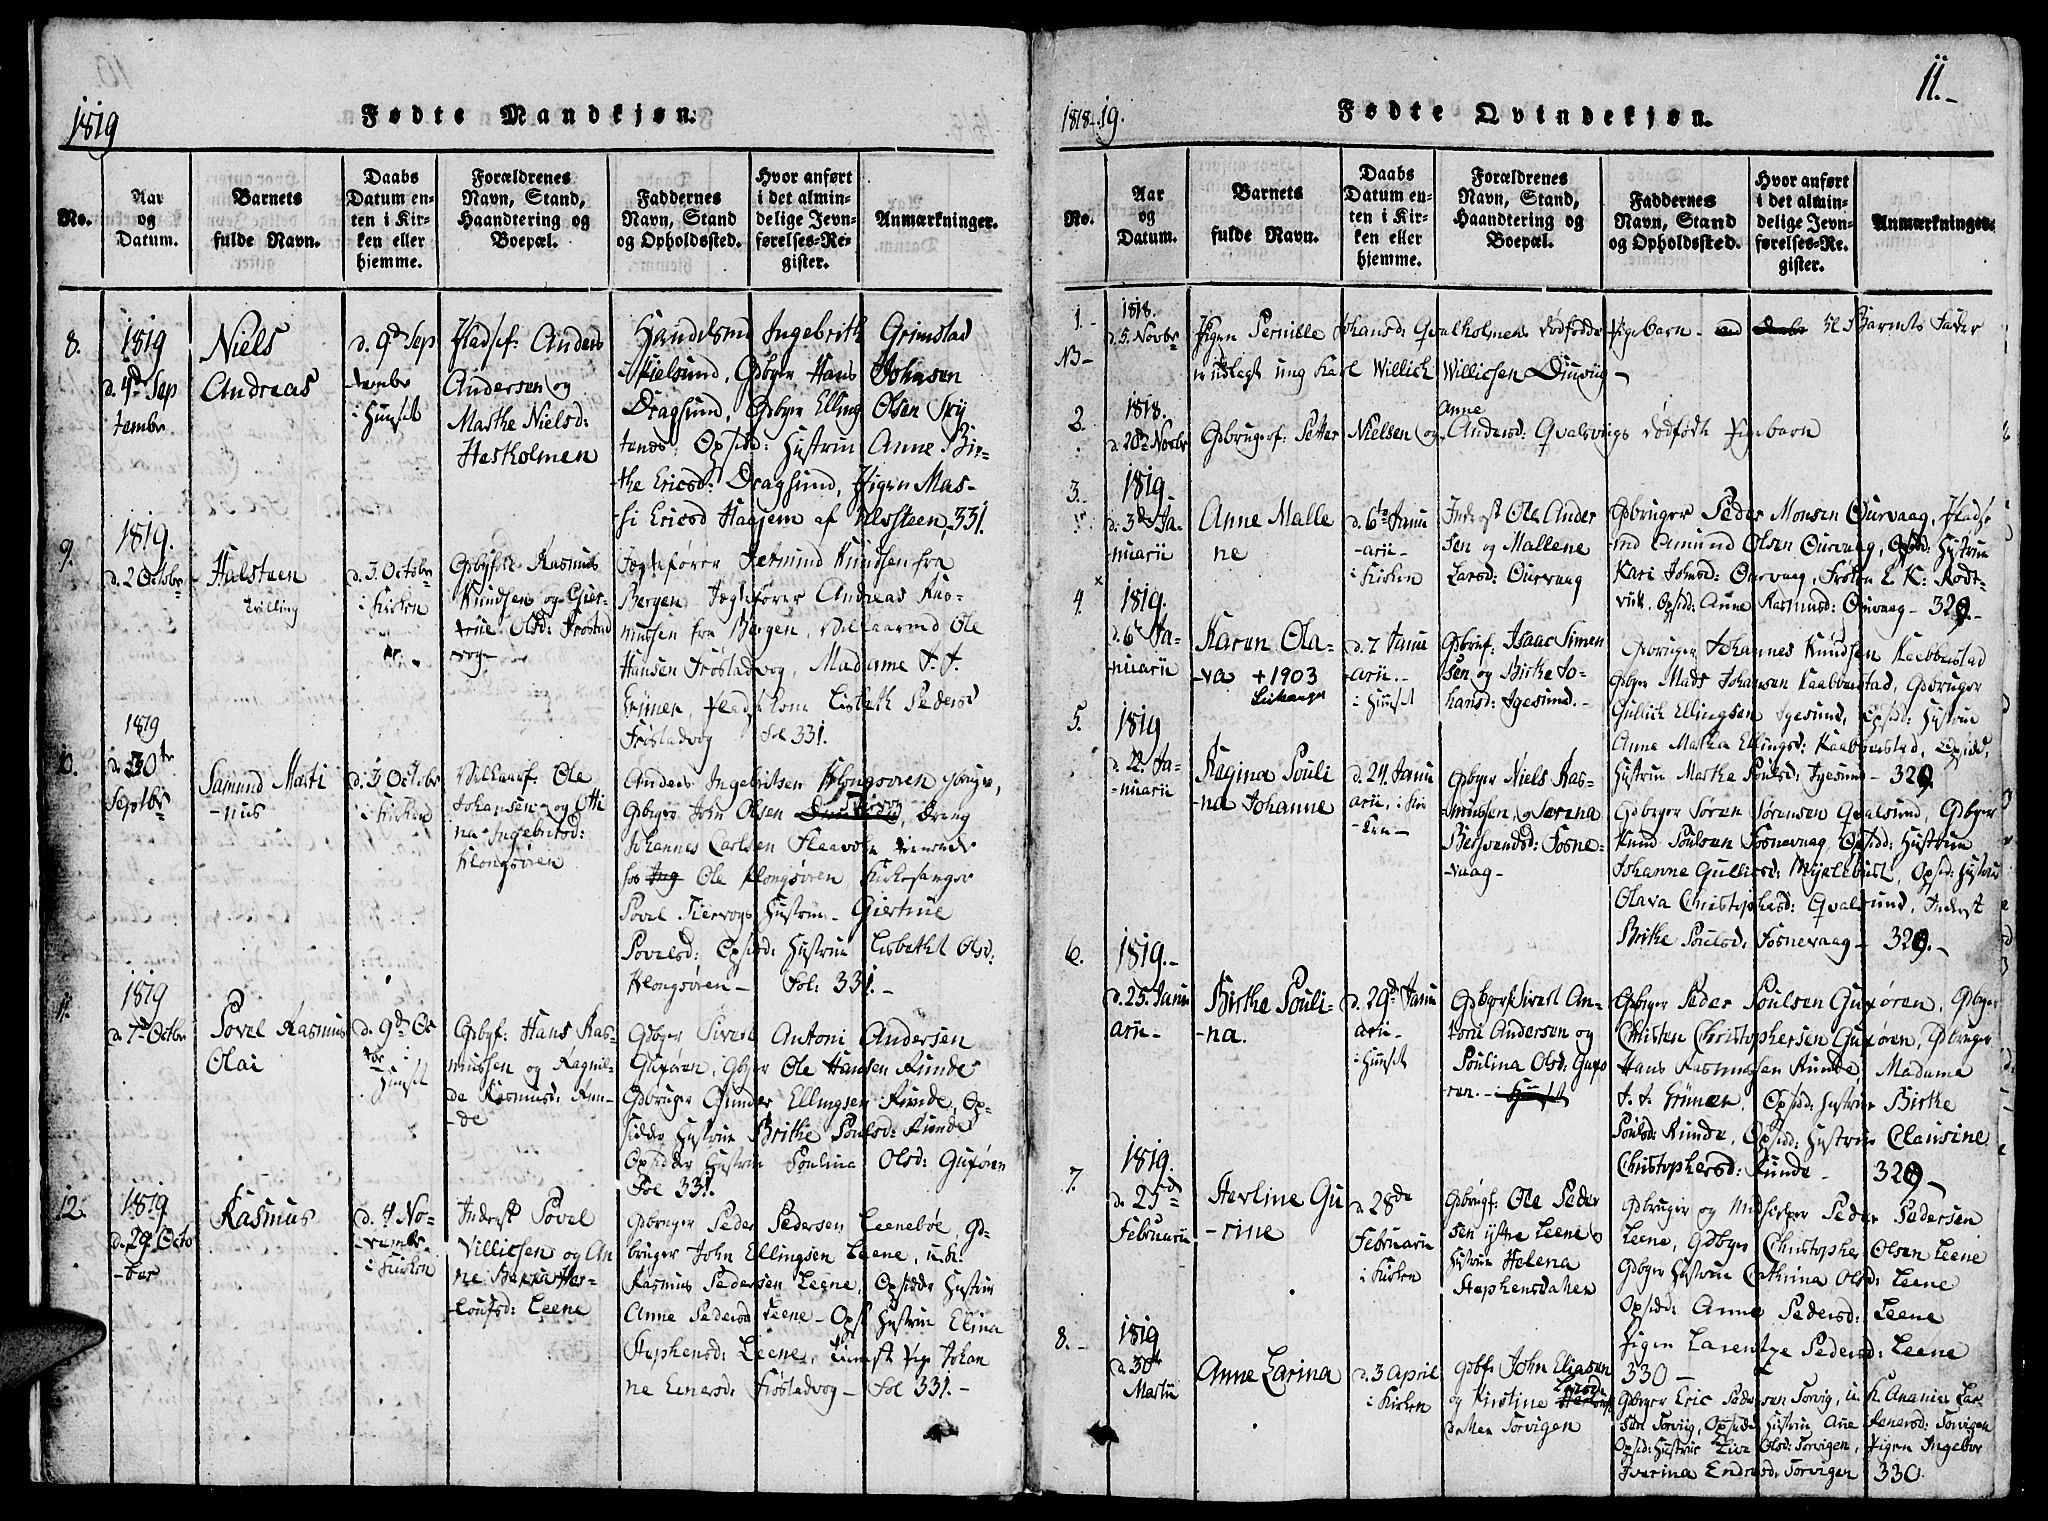 1819
Fødte Mandkjøn.
No.
Aar
og
Datum.
Barnets
fulde Navn.
Daabs
Datum en-
ten i Kir-
ken eller
hjemme.
Forældrenes
Navn, Stand,
Haandtering og
Boepæl.
Faddernes
Navn, Stand
og Opholdssted.
Hvor anført
i det almin-
delige Jevn-
førelses-Re-
gister.
Anmærkninger.
8.
1819
d. 4de Sep
tembr
Niels
Andreas
d. 9de Sep
tembr
i Huuset
Pladsf: Anders
Andersen og
Marthe Nielsd:
Hestholmen
Handelsmd Ingebrith Grimstad
Gdbger Hans Johnsen
Dragsund, Gdbger Elling Olsen
Opsidd: Hustrue Anne Bir-
the Ericsd: Dragsund, Pigen Mas-
si Ericsd Haajem af Ulsteen, 331.
9.
1819.
d. 2 Octobr
Halsteen
Tvilling
d. 3. Octobr
i Kirken
Gdbyf: Rasmus
Knudsen og Gier-
true Olsd: Frøstad
vog-
Jægtefører Knudsen fra
Bergen, Jægtefører Andreas Ras-
mussen fra Bergen, Ole
Hansen Frøstadvog, Madame J. J.
Grüner, Lisbeth Pedersd
Frøstadvog Fol 331.
10.
1819
d. 30te
Septbr
Samund Marti
-nus
d. 3 Octobr
i Kirken
Ole
Johansen og Otti
na Ingebritsd:
Klongsøren
Anders Ingebritsen Klongsøren
Gdbger John Olsen Dreng
Johannes Carlsen Flaavær tienende
hos Ole Klongsøren, Kirkesanger
Povel Hustrue Giertrue
Povelsd: Opsidd: Hustrue Lisbethe Olsd:
Klongsøren- Fol: 331.-
11.
1819
d. 7de Octbr
Povel Rasmus
Olai
d. 9de Oc
tbr i
Huuset
Gdbyf: Hans Ras-
mussen og Ragnil-
de Rasmusd: Run-
de
Gdbger Sivert Antoni Andersen
Guxøren, Gbger Ole Hansen Runde
Gdbruger Gunder Ellingsen Runde, Op-
sidder Hustrue Brithe Poulsd: Runde
Opsidder Hustrue Poulina Olsd: Guxøren
Fol 331.
12.
1819
d. 29 Octo
-ber
Rasmus
d. 4 No-
vembr
i Kirken
Inderst Povel
Villicsen og An
ne
Leene
Gdbruger Peder Pedersen Leenebøe, Gd-
bruger John Ellingsen Leene, u.k:
Rasmus Pedersen Leene, Opsidde Hustrue
Anne Pedersd Leene - Ops Hustrue Elina
Stephensd: Leene, Pige Johan
ne Einersd: Frøstadvog- Fol 331.-
11.-
1818-19.
Fødte Qvindekjøn.
No.
Aar
og
Datum.
Barnets
fulde Navn.
Daabs
Datum en-
ten i Kir-
ken eller
hjemme.
Forældrenes
Navn, Stand,
Haandtering og
Boepæl.
Faddernes
Navn, Stand
og Opholdssted.
Hvor anført
i det almin-
delige Jevn-
førelses-Re.
gister.
Anmærkninger.
1.-
NB-
1818.
d. 5. Novbr
Pigen Pernille Johansd: Qvalholmens dødfødde Pigebarn - til Barnets Fader
er udlagt ung Karl Willich Willicsen
2.
1818.
d. 28de Novbr
Gdbrugerf: Petter Nielsen og Anne Andersd: Qvalsvigs dødfødt Pigebarn
3.
1819.
d. 3de Ja-
nuarii
Anne Malle
ne
d. 6te Janu
-arii-
i Kirken
Inderst Ole Ander
sen og Mallene
Larsd: Ourvaag
Gdbruger Peder Monsen Ourvaag, Pladse
md Amund Olsen Ourvaag, Opsidd: Hustrue
Kari Johnsd: Ourvaag, Frøken E K: Rodt-
vik, Opsid: Anne Rasmusd: Ourvaag - 329.-
4.
1819.
d. 6te Ja-
nuarii
Karen Ola-
-va +1903
d. 7 Janu
arii.-
i Huuset
Gdbruf: Isaac Simen
sen og Birthe Jo-
hansd: Igesund.-
Gdbruger Johannes Knudsen Kaabberstad
Gdbger Mads Johansen Kaabberstad, Gdbruger
Gullick Ellingsen Igesund, Opsid: Hustrue
Anne Martha Ellingsd: Kaabberstad, Opsidd:
Hustrue Marthe Poulsd: Igesund- 329
5.
1819
d. 22. Ja-
-nuarii
Ragina Pouli
-na Johanne
d. 24 Janu
arii, i Kir
-ken-
Gdbger Niels Ras-
mussen, og Serena
Fosne-
-vaag-
Gdbger Søren Sørensen Qvalsund, Gdbger
Knud Poulsen Fosnevaag, Opsidd: Hustrue
Johanne Gullicsd: Myklebust, Opsid: Hustrue
Olava Christophersd: Qvalsund, Inderst
Brithe Poulsd: Fosnevaag- 329.-
6.
1819.-
d. 25. Janu
arii-
Birthe Pouli-
-na.
d. 29de Janu
arii-
i Huuset
Gdbger Sivert An-
toni Andersen og
Poulina Olsd: Guxø
ren.-
Gdbger Peder Poulsen Guxøren, Gdbger
Christen Christophersen Guxøren, Gdbruger
Hans Rasmussen Runde, Madame
J. J. Grüner, Opsidd: Hustrue Birthe
Poulsd: Runde, Opsidd: Hustrue Clausine
Christophersd: Runde- 329-
7.
1819.
d. 25de
Februarii
Herline Gu
-rine
d. 28de
Februarii
i Kirken
Gdbrugf: Ole Peder
sen ystre Leene
Hustrue Helena
Stephensdatter
Gdbruger og Peder Pedersen
Leene, Gdbger Christopher Olsen Leene
Gdbger Hustrue Cathrina Olsd: Leene
Opsidd: Anne Pedersd: Leene
Pigen Larentze Pedersd: Leene
330 -
8.-
1819
d. 30te
Martii
Anne Larina
d. 3 April
i Kirken
Gdbf: John Eliasen
og Kirstine Larsd
datter Torvigen
Gdbger Eric Pedersen Torvig, u. K. Ananias Lar-
sen Torvig, Opsidd Hustrue Ane Torvigen
Opsid: Hustrue Live Olsd: Torvigen, Pigen Ingebor
Iverina Endresd: Torvigen 330.